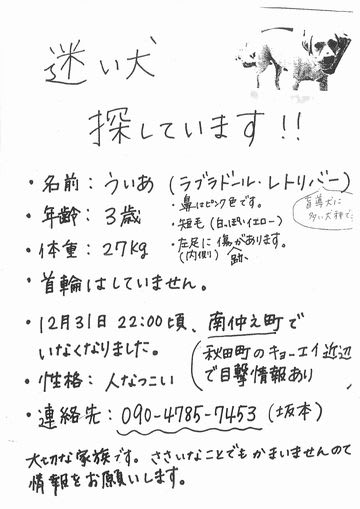 迷い犬
探しています!!
・名前：ういあ（ラブラドール・レトリバー）
盲導犬に
多い犬種です
・年齢：3歳
・鼻はピンク色です。
・短毛（白っぽいイエロー）
・体重：27kg
・左足に傷があります。
（内側） 跡
・首輪はしていません。
・12月31日 22:00頃、南仲之町で
いなくなりました。
（秋田町のキョーエイ近辺
で目撃情報あり
・性格：人なつこい
・連絡先：090-4785-7453（坂本）
大切な家族です。ささいなことでもかまいませんので
情報をお願いします。